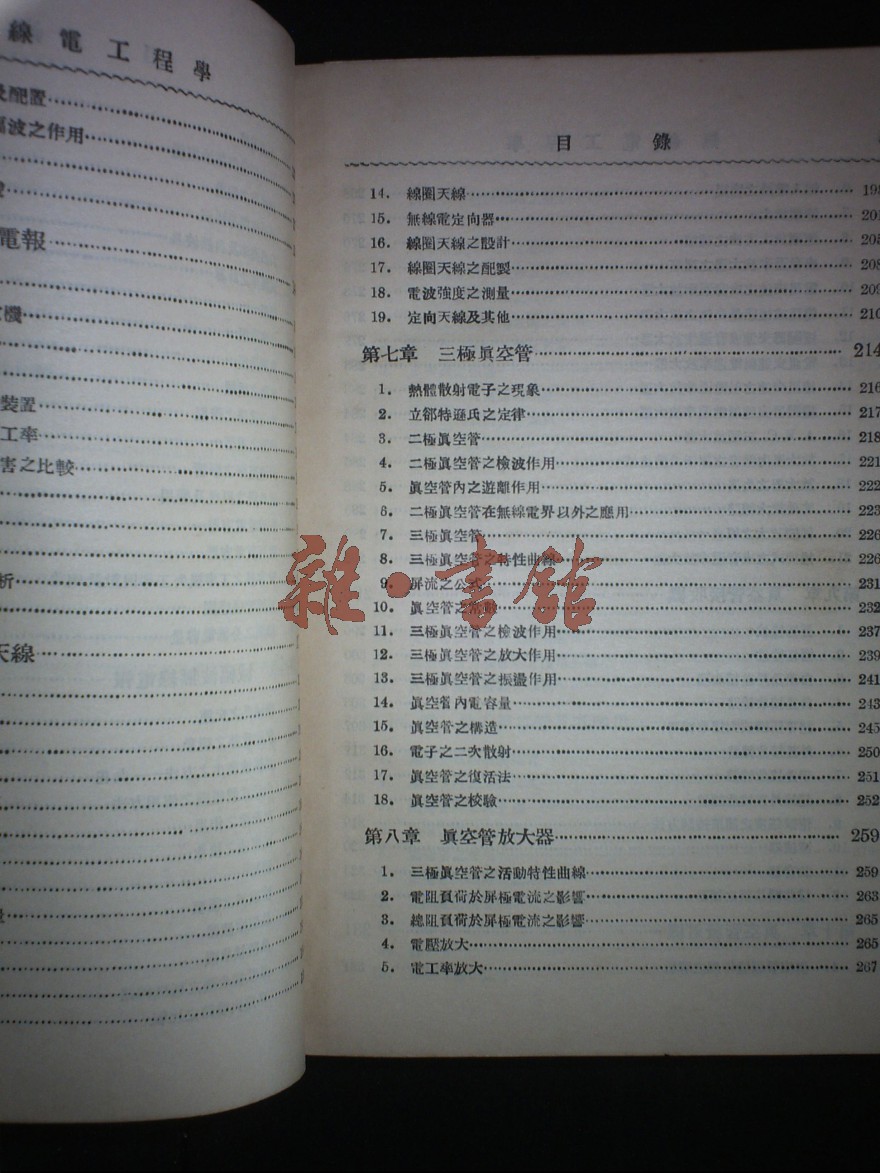 線電工程學
配置
波之作用
電報
機
裝置
工率
害之比較
析
天線
目錄
14. 線圈天線 198
15. 無線電定向器 201
16. 線圈天線之設計 205
17. 線圈天線之配製 208
18. 電波強度之測量 209
19. 定向天線及其他 210
第七章 三極眞空管 214
1. 熱體散射電子之現象 216
2. 立郤特遜氏之定律 217
3. 二極眞空管 218
4. 二極眞空管之檢波作用 221
5. 眞空管內之遊離作用 222
6. 二極眞空管在無線電界以外之應用 223
7. 三極眞空管 226
8. 三極眞空管之特性曲線 226
9. 屏流之公式 231
10. 眞空管之常數 232
11. 三極眞空管之檢波作用 237
12. 三極眞空管之放大作用 239
13. 三極眞空管之振盪作用 241
14. 眞空管內電容量 243
15. 眞空管之構造 245
16. 電子之二次散射 250
17. 眞空管之復活法 251
18. 眞空管之校驗 252
第八章 眞空管放大器 259
1. 三極眞空管之活動特性曲線 259
2. 電阻負荷於屏極電流之影響 263
3. 總阻負荷於屏極電流之影響 265
4. 電壓放大 265
5. 電工率放大 267
雜·書館